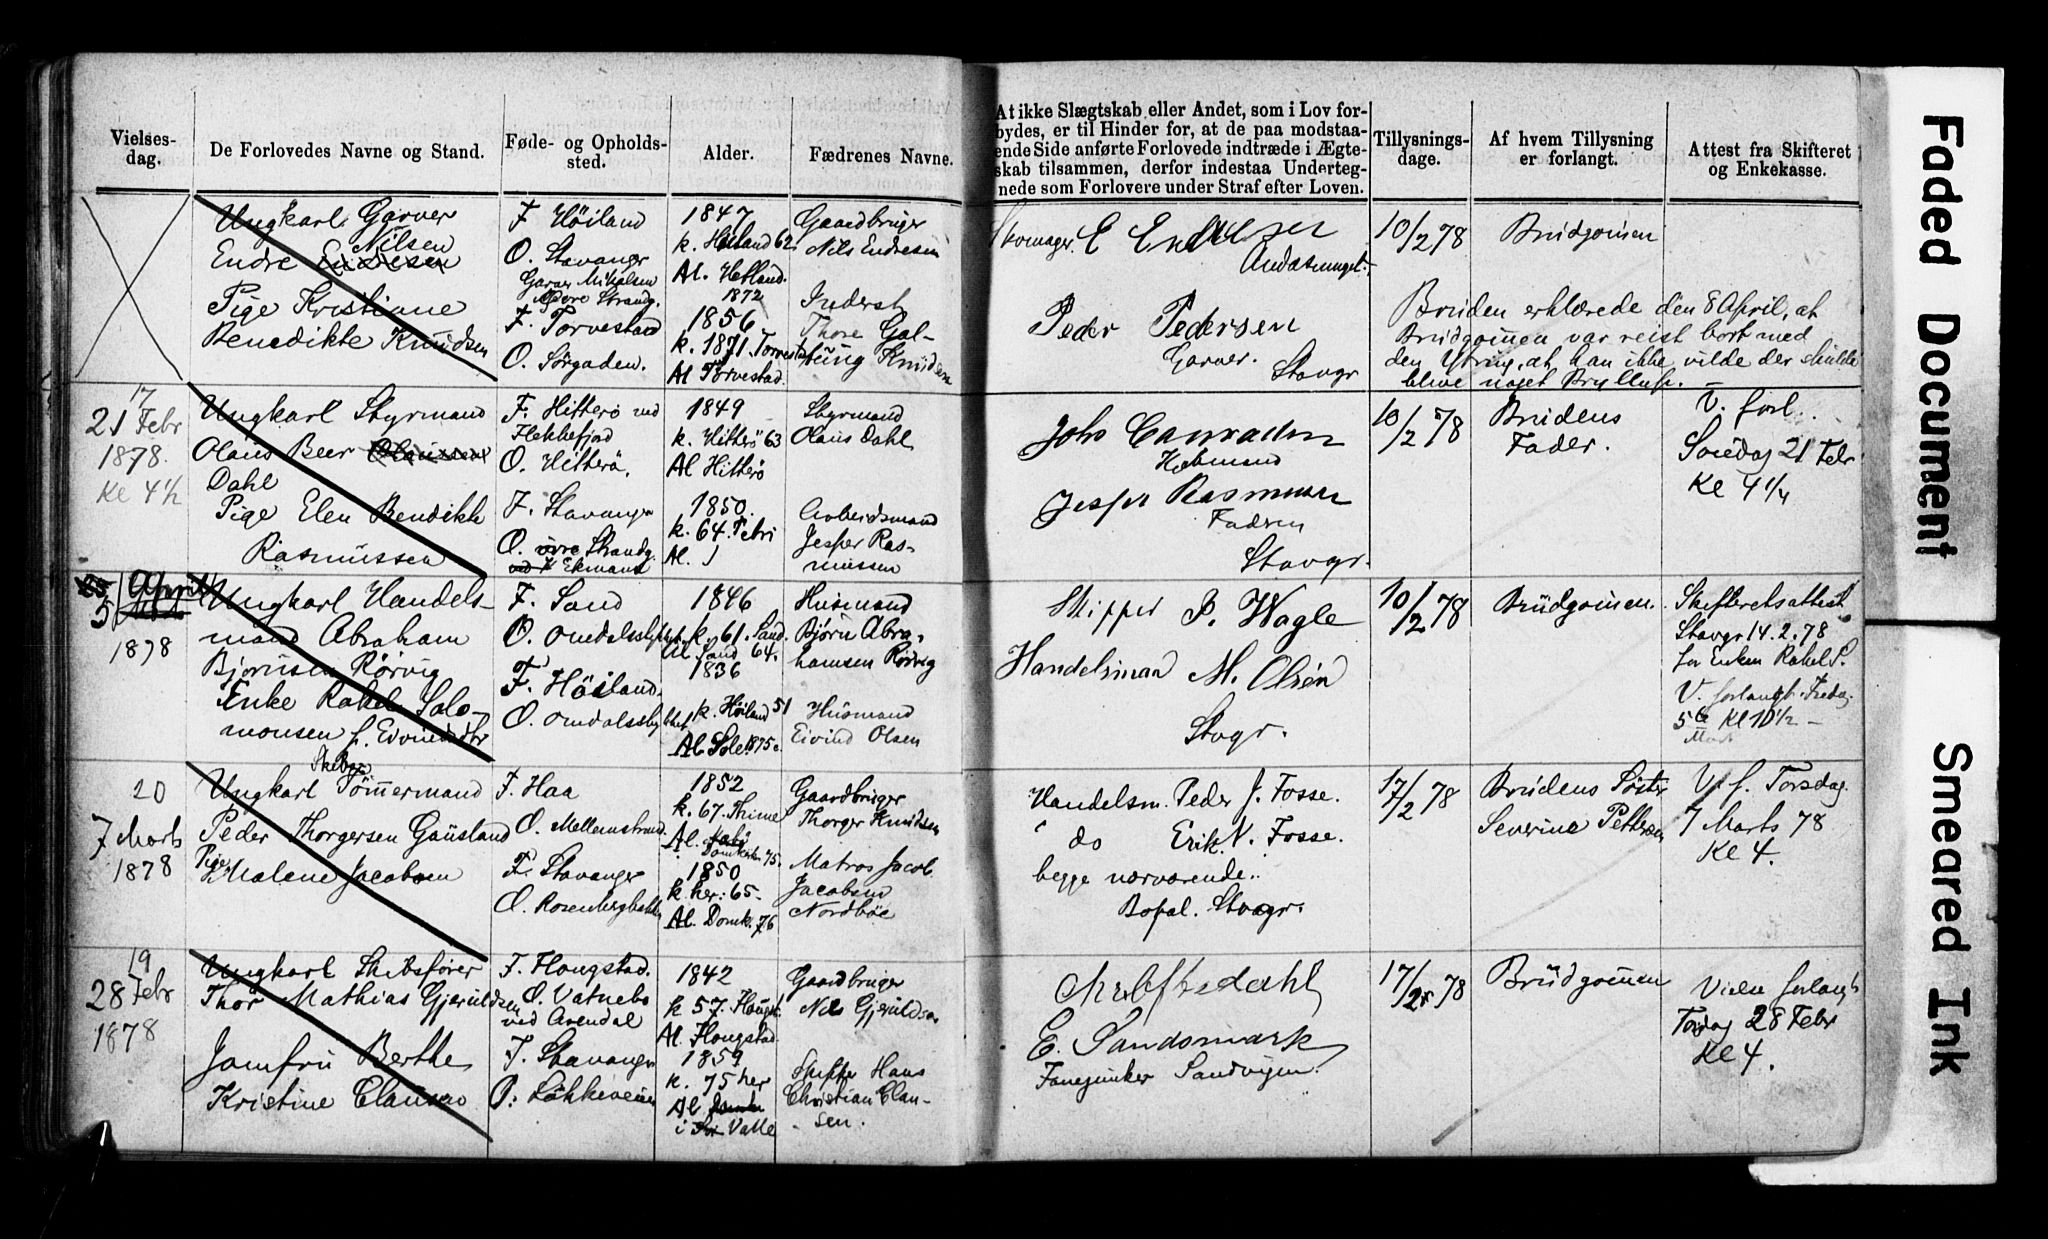 Vielses-
dag.
De Forlovedes Navne og Stand.
Føde- og Opholds-
sted.
Alder.
Fædrenes Navne.
At ikke Slægtskab eller Andet, som i Lov for-
bydes, er til Hinder for, at de paa modstaa-
ende Side anførte Forlovede indtræde i Ægte-
skab tilsammen, derfor indestaa Underteg-
nede som Forlovere under Straf efter Loven.
Tillysnings-
dage.
Af hvem Tillysning
er forlangt.
Attest fra Skifteret
og Enkekasse.
Ungkarl Garver
Nilsen
Endre Endresen
Pige Kristiane
Benedikte Knudsen
F. Höiland
O. Stavanger
Garver Mikalsen
Nedre Strandg.
F. Torvestad
O. Sørgaden.
1847
k. Höiland 62
Al. Hetland.
1872
1856
k. 1871. Torvestad
Al Torvestad.
Gaardbruger
Nils Endresen
Inderst
Thore Gal-
tung Knudsen
Skomager E
Peder Pedersen
Garver.
Stavgr
10/2 78
Brudgomen
Bruden erklærede den 8 April, at
Brudgomen var reist bort med
den Ytring, at han ikke vilde der skulde
blive noget Bryllup.
17
21 Febr
1878.
Kl 4 1/2
Ungkarl Styrmand
Olaus Beer Olaussen
Dahl
Pige Elen Bendikte
Rasmussen
F. Hitterö ved
Flekkefjord
O. Hitterö.
F. Stavanger
O. øvre Strandg.
1849
k. Hitterö 63
Al Hitterö
1850.
k. 64. Petri
Al. J
Styrmand
Olaus Dahl
Arbeidsmand
Jesper Ras-
mussen
John
Jesper Rasmussen
Faderen
Stavgr.
10/2 78
Brudens
Fader.
V. forl.
21 Febr
Kl 4 1/4
5 April
1878
Ungkarl Handels-
mand Abraham
Bjørnsen Rörvig
Enke Rakel Salo-
monsen f. Eivindsdtr
F. Sand
O.
F. Höiland.
O.
1846
k. 61. Sand.
Al Sand 64.
1836
k. Höiland 51
Al Sole 1875
Husmand
Bjørn Abra-
hamsen Rörvig
Husmand
Eivind Olsen
Skipper P. Wagle
Handelsman M. Olsen
Stvgr.
10/2 78
Brüdgomen.
Skifteretsattest
Stavgr 14.2.78
for Enken Rakel S.
V. forlangt. Fredag
5te Kl 10 1/2 –
20
7 Marts
1878
Ungkarl Tömmermand
Peder Thorgersen Gausland
Pige
Malene Jacobsen
F. Haa
O. Mellemstrand.
F. Stavanger
O. Rosenbergbakken
1852
k. 67. Thime
Al.
Domkirken 75.
1850
k. her: 65–
Al. Domk. 76
Gaardbruger
Thorger Knudsen
Matros Jacob
Jacobsen
Nordböe
Handelsm. Peder J. Fosse.
do Erik N. Fosse.
begge nærværende.
Bopæl. Stvgr.
17/2 78
Brudens Söster
Severine Pettersen
V. f. Torsdag
7 Marts 78
Kl 4.
19
28 Febr
1878
Ungkarl Skibsfører
Thor Mathias Gjeruldsen
Jomfru Berthe
Kristine Clausen
F. Flougstad.
O. Vatnebo
ved Arendal
F. Stavanger
O: Løkkeveien
1842
k 57. Flougst.
Al. Flougstad
1859
k. 75 her
Al
i Valle
Gaardbruger
Nils Gjeruldsen
Skipper Hans
Christian Clau-
sen.
E. Sandsmark
17/2 78
Brüdgommen
Vielse forlangt
Torsdag 28 Febr
Kl 4.
Faded Document
Smeared Ink